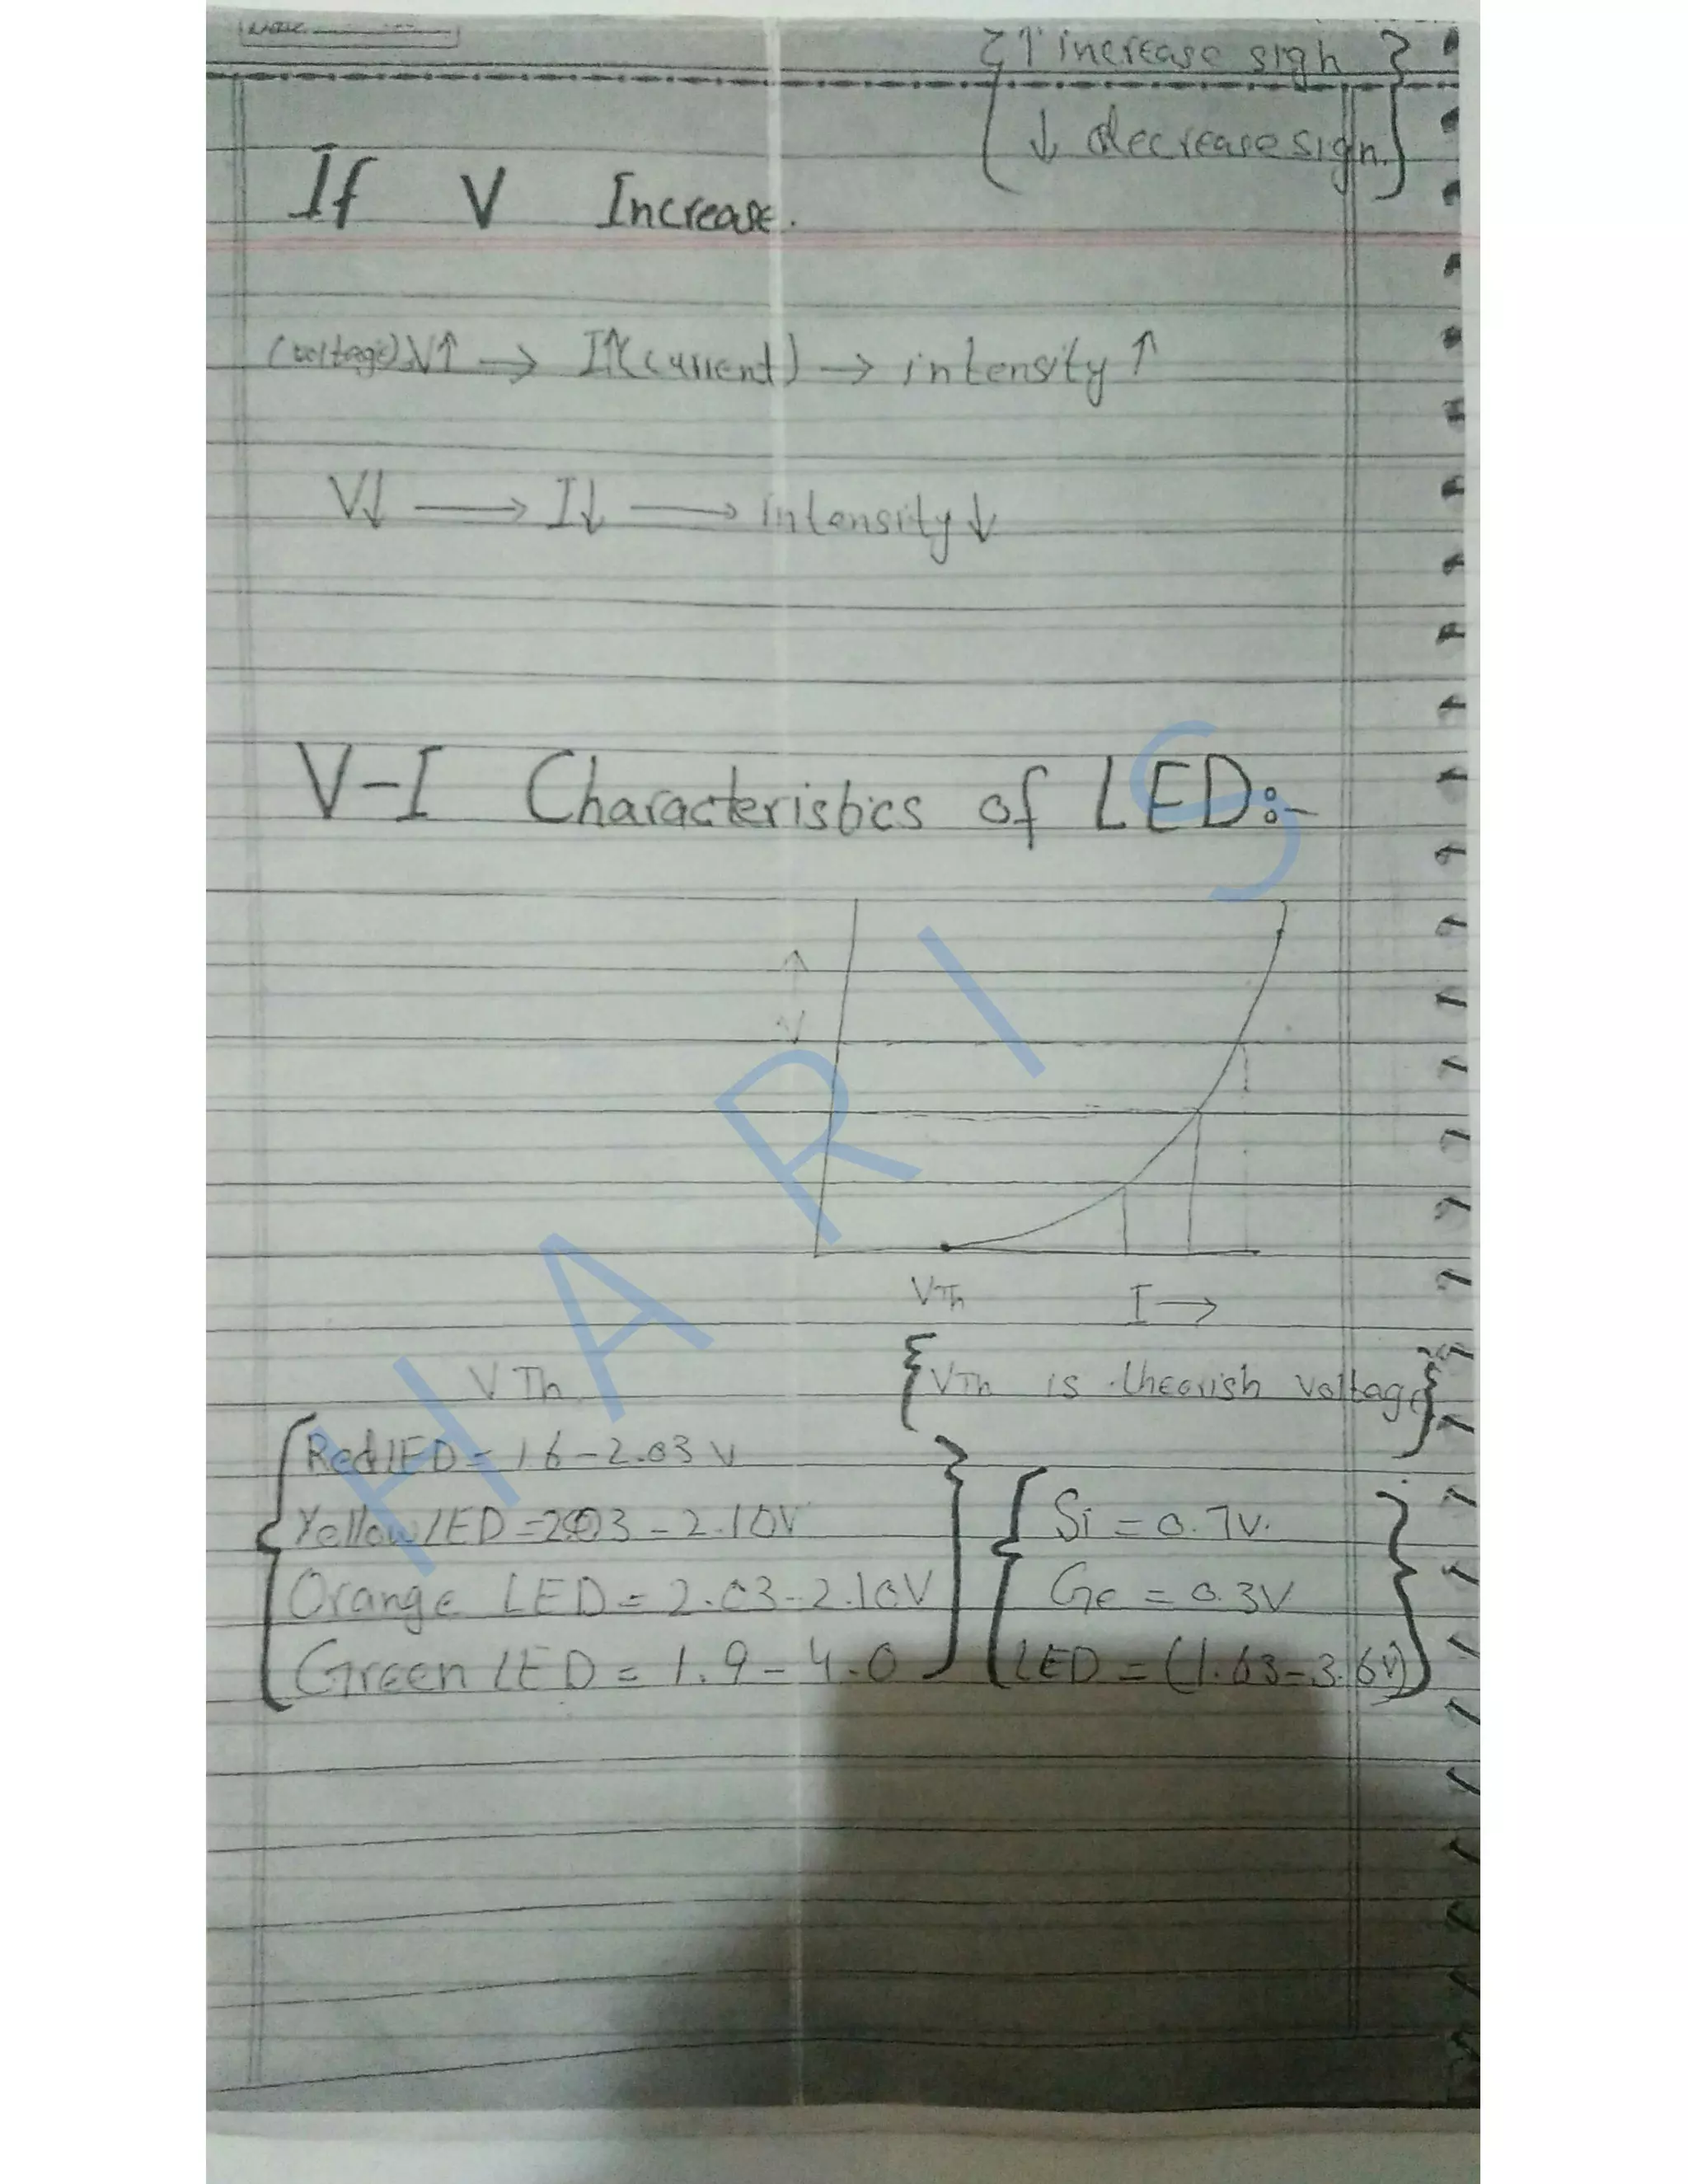 {↑ increase sign}
↓ decrease sign.
If V Increase.
(voltage) V↑ → I↑(current) → intensity ↑
V↓ → I↓ → intensity ↓
V-I Characteristics of LED:-
V
VTh I →
VTh {VTh is theorish voltage}
Red LED = 1.6 - 2.03 V
Yellow LED = 2.03 - 2.10V
Orange LED = 2.03 - 2.10V
Green LED = 1.9 - 4.0
Si = 0.7V.
Ge = 0.3V
LED = (1.63 - 3.6V)
HARIS